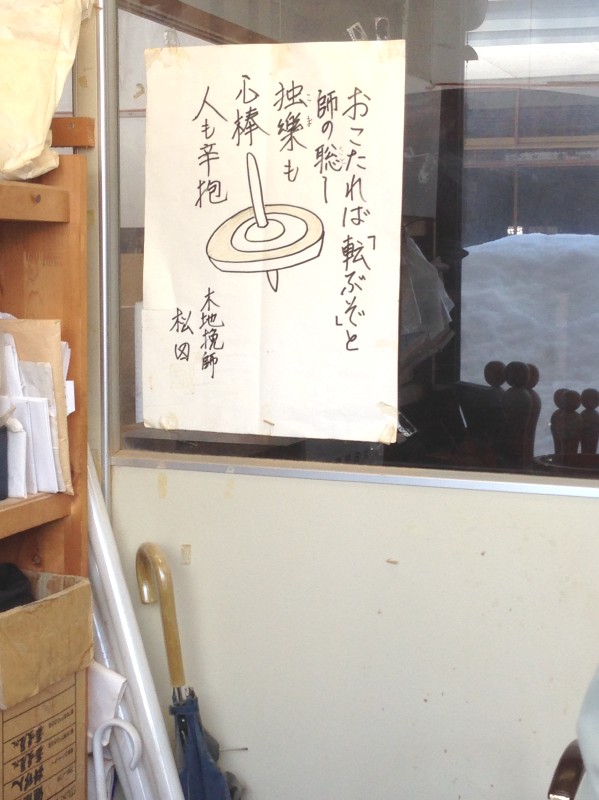 おこたれば「転ぶぞ」と
師の聡し
独樂も
こま
心棒
人も辛抱
木地挽師
松田